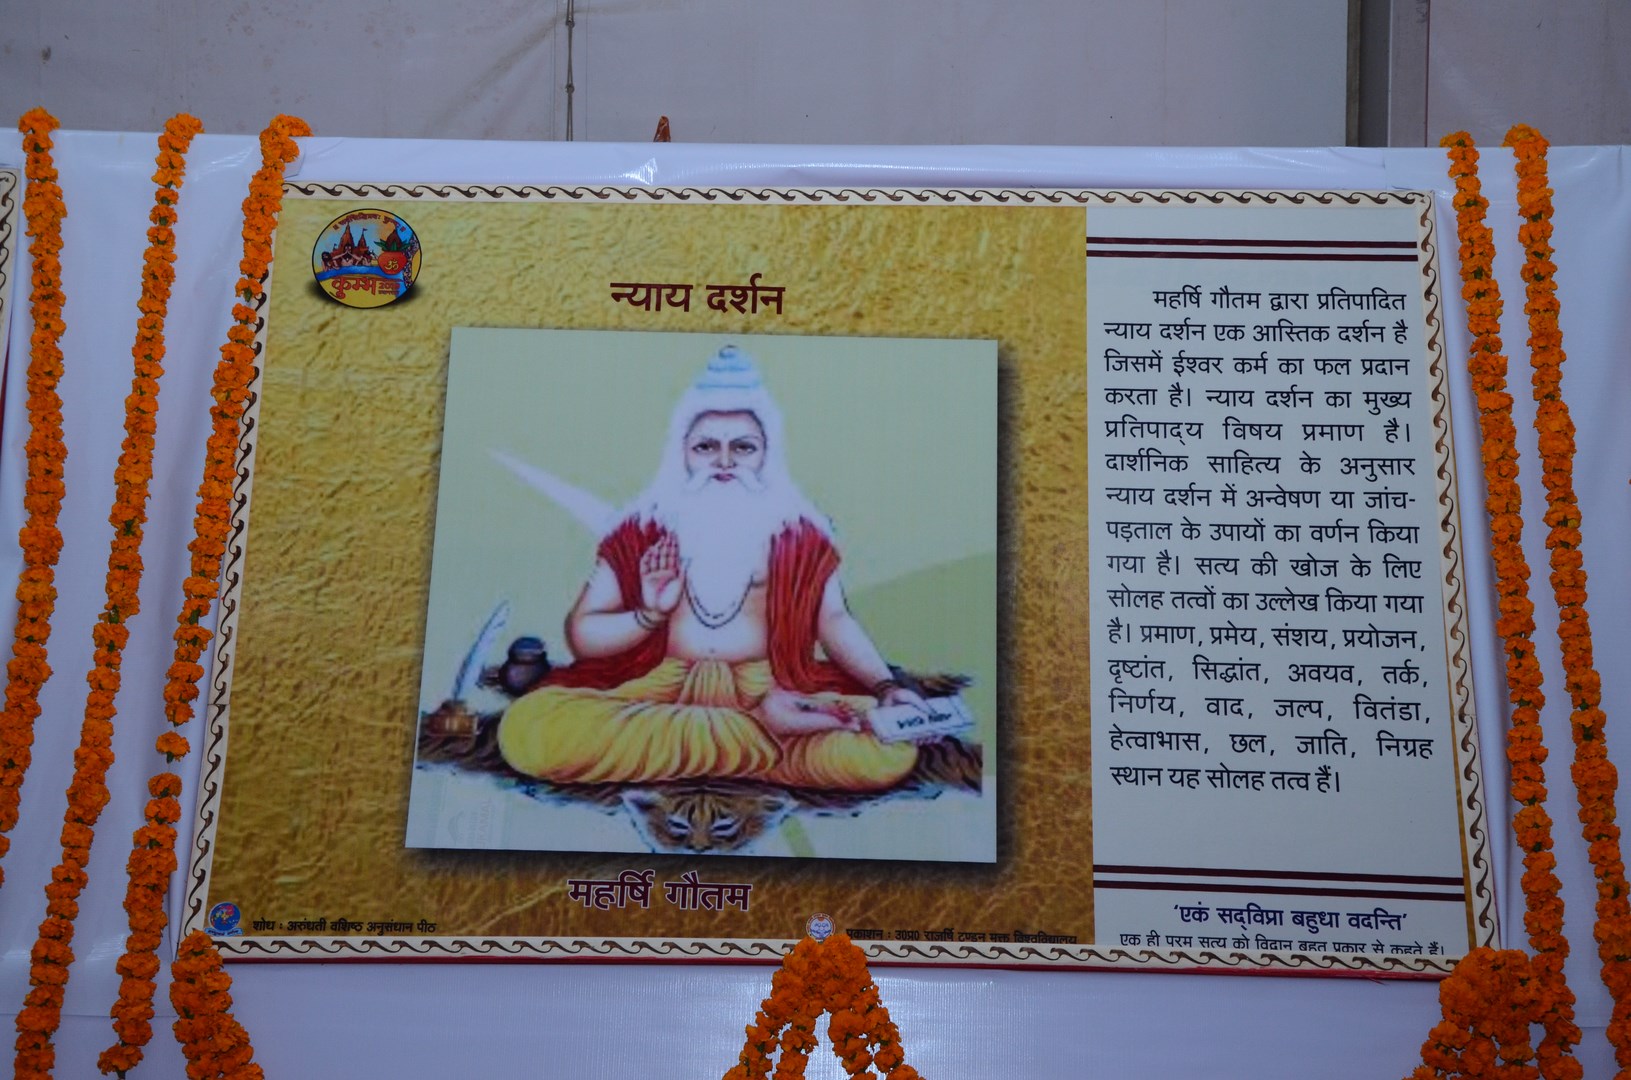 कुम्भ
न्याय दर्शन
महर्षि गौतम
शोध : अरुंधती वशिष्ठ अनुसंधान पीठ
प्रकाशन : उ०प्र० राजर्षि टण्डन मुक्त विश्वविद्यालय
महर्षि गौतम द्वारा प्रतिपादित
न्याय दर्शन एक आस्तिक दर्शन है
जिसमें ईश्वर कर्म का फल प्रदान
करता है। न्याय दर्शन का मुख्य
प्रतिपाद्य विषय प्रमाण है।
दार्शनिक साहित्य के अनुसार
न्याय दर्शन में अन्वेषण या जांच-
पड़ताल के उपायों का वर्णन किया
गया है। सत्य की खोज के लिए
सोलह तत्वों का उल्लेख किया गया
है। प्रमाण, प्रमेय, संशय, प्रयोजन,
दृष्टांत, सिद्धांत, अवयव, तर्क,
निर्णय, वाद, जल्प, वितंडा,
हेत्वाभास, छल, जाति, निग्रह
स्थान यह सोलह तत्व हैं।
'एकं सद्विप्रा बहुधा वदन्ति'
एक ही परम सत्य को विद्वान बहुत प्रकार से कहते हैं।